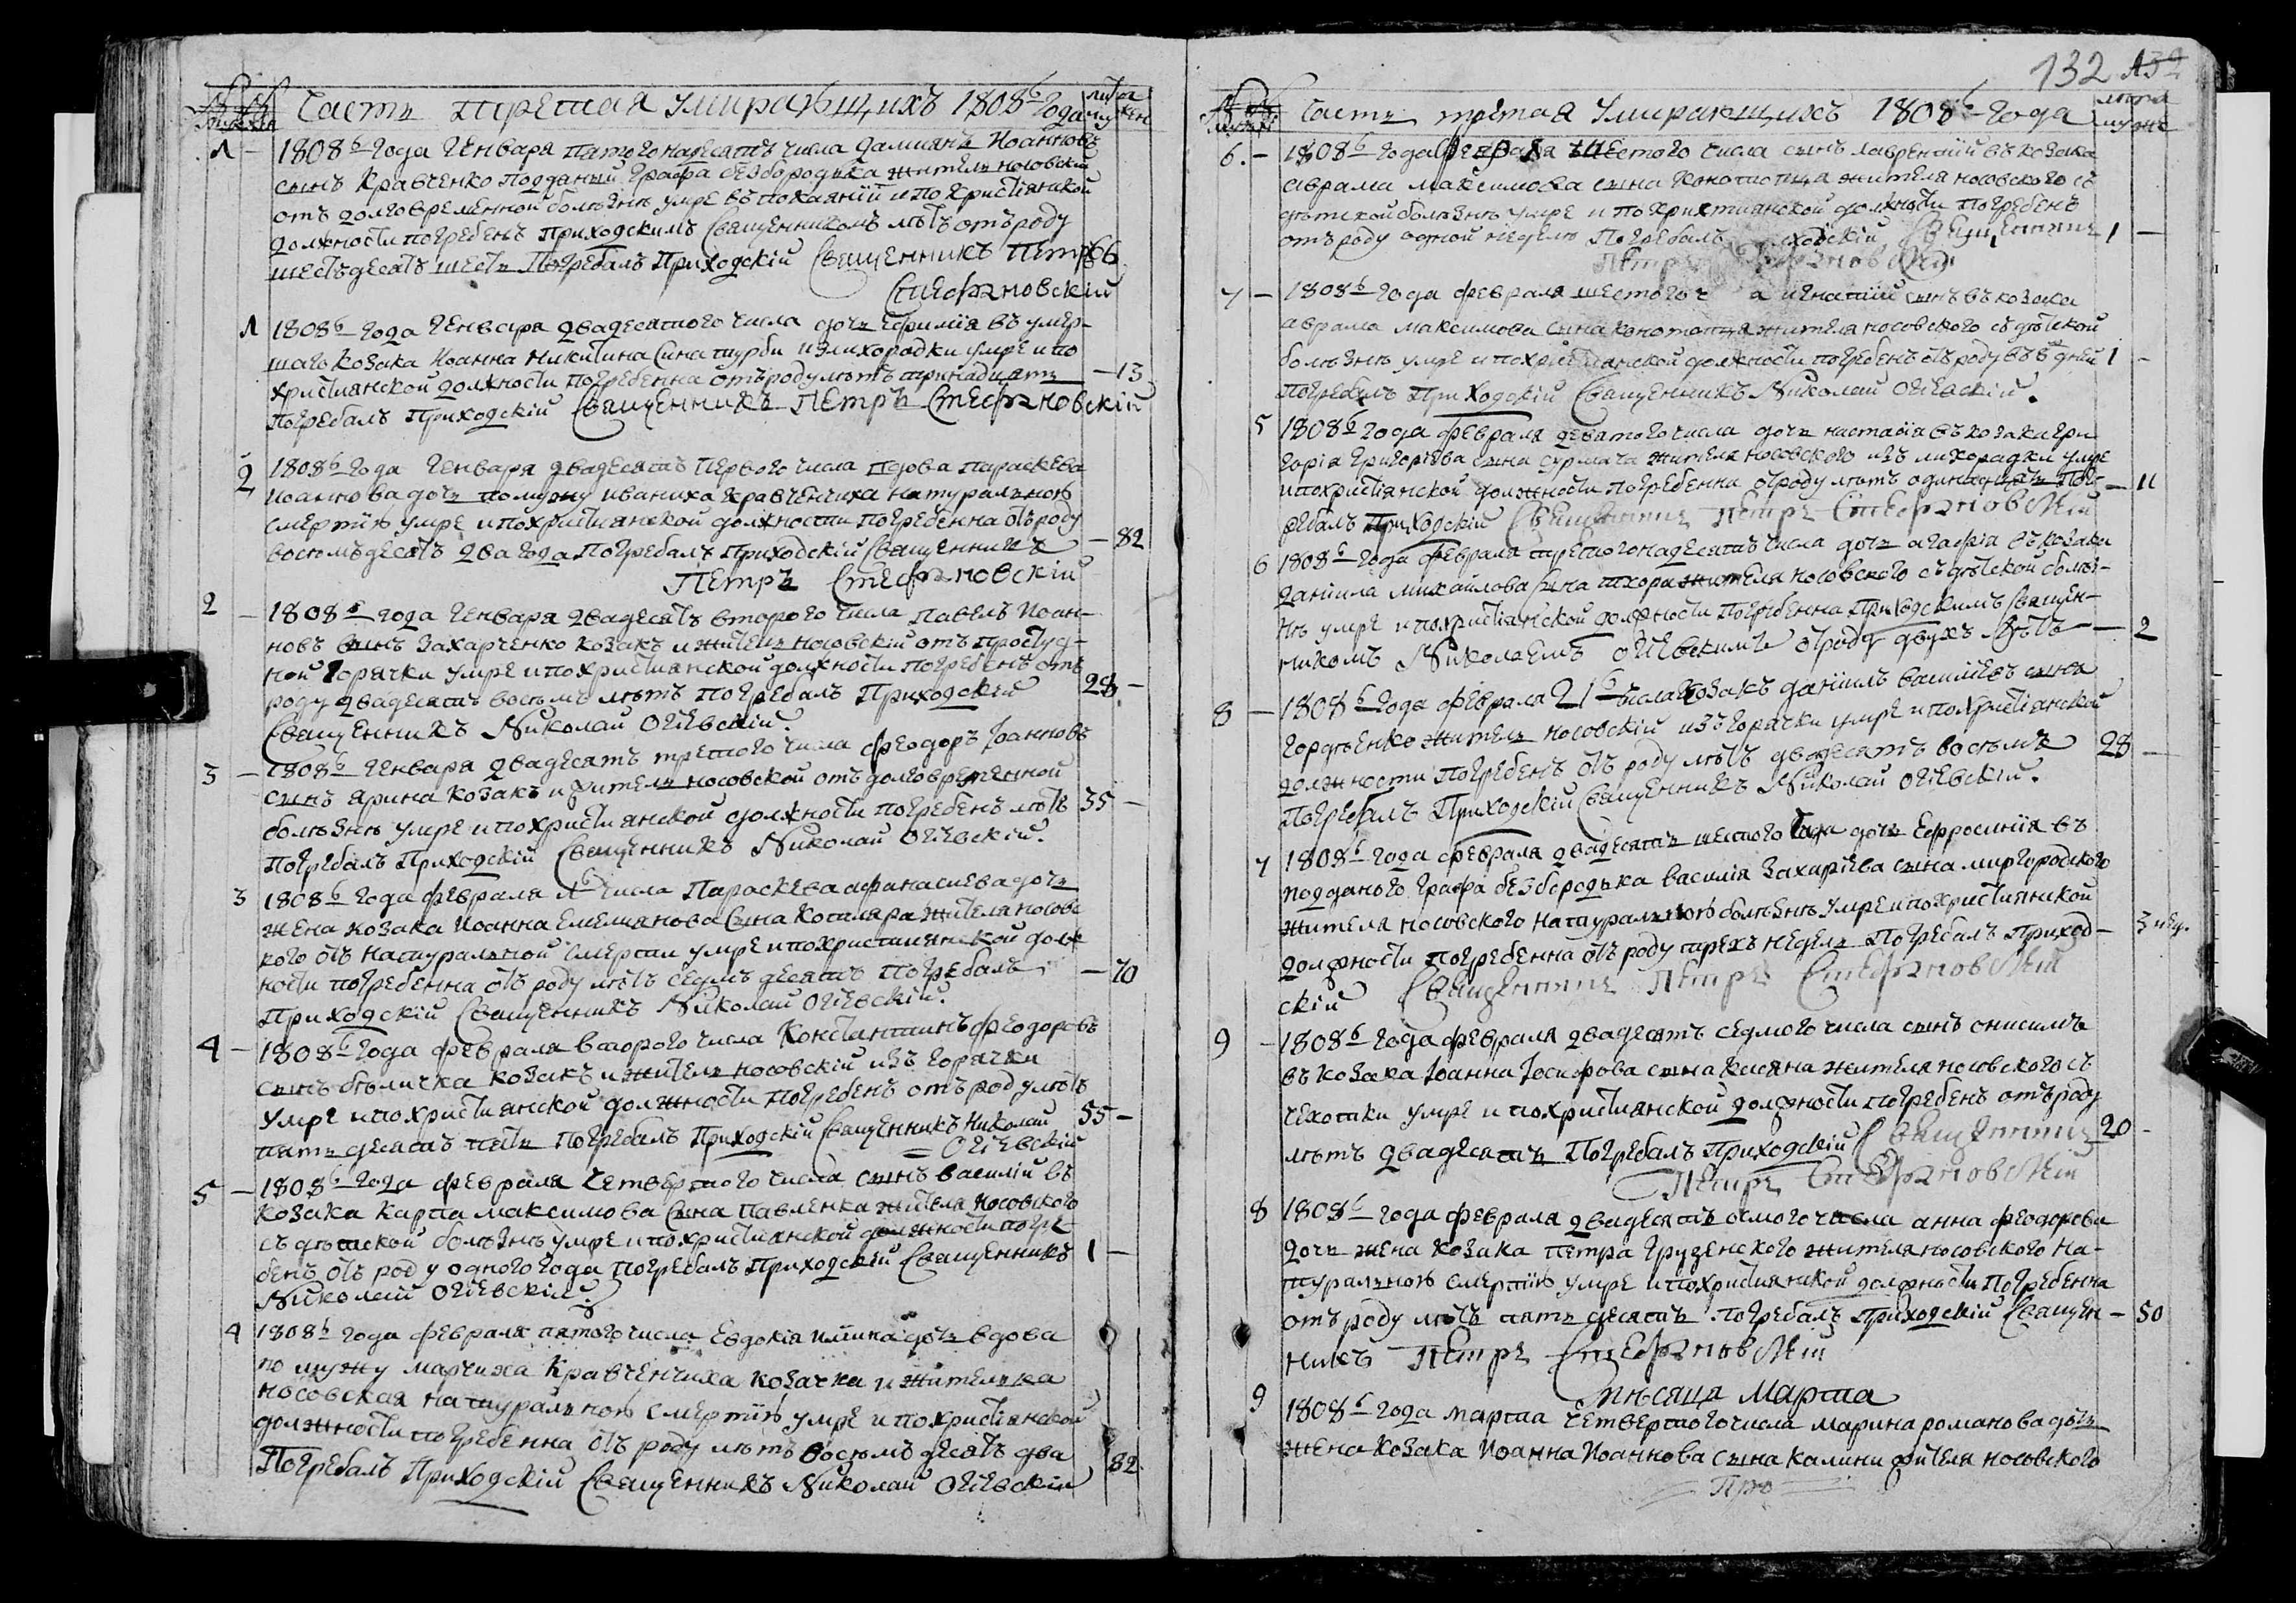 Часть третая умирающихъ 1808го Года лѣта муж жен
1 – 1808го Года Генваря пятогонадесять числа Дамиянъ Иоанновъ
сынъ Кравченко подданый Графа безбородька житель носовский
отъ долговременной болѣзнѣ умре въ покаянїи и по христїянской
должности погребенъ Приходскимъ Священникомъ лѣтъ отъ роду
шестьдесятъ шесть Погребалъ Приходскїй Священникъ Петръ 66
Стефановскїй
1 1808го Года Генваря двадесятого числа дочь Ефимїя въ умер-
шаго козака Иоанна Никитина Сина щурби изъ лихорадки умре и по
християнской должности погребенна отъ роду лѣтъ тринадцять – 13
погребалъ Приходскїй Священникъ Петръ Стефановскїй
2 1808го Года Генваря двадесятъ первого числа вдова параскева
иоаннова дочь помужу иваниха кравченчиха натуральною
смертїю умре и похристиянской должности погребенна отъ роду
восемьдесятъ два года Погребалъ Приходскїй Священникъ – 82
Петръ Стефановскїй
2 – 1808го года Генваря двадесятъ второго числа Павелъ Иоан-
новъ сынъ Захарченко козакъ и житель носовский отъ простуд-
ной горячки умре и похристиянской должности погребенъ отъ
роду двадесятъ восемъ лѣтъ погребалъ Приходскїй 28 –
Священникъ Николай Огїевскїй.
3 – 1808го Генваря двадесятъ третого числа Феодоръ Иоанновъ
сынъ ярина козакъ и житель носовской отъ долговременной
болѣзнѣ умре и похристиянской должности погребенъ лѣтъ 35 –
погребалъ Приходскїй Священникъ Николай Огїевскїй.
3 1808го года февраля 1го числа Параскева афанасиева дочь
жена козака Иоанна Емелянова Сина Котляра жителя носовс
кого отъ натуральной смерти умре и похристиянской долж
ности погребенна отъ роду лѣтъ седмъ десятъ погребалъ – 70
Приходскїй Священникъ Николай Огїевскїй.
4 – 1808го Года февраля второго числа Константинъ Феодоровъ
сынъ бѣличка козакъ и житель носовскїй изъ горячки
умре и похристиянской должности погребенъ отъ роду лѣтъ
пять десятъ пять погребалъ Приходскїй Священникъ Николай 55 –
= Огїевскїй
5 – 1808го Года февраля четвертого числа сынъ василїй въ
козака карпа максимова сина павленка жителя носовского
съ дѣтской болѣзнѣ умре и похристиянской должности погре
бенъ отъ роду одного года погребалъ Приходскїй Священникъ 1 –
Николай Огїевскїй.
4 1808го года февраля пятого числа Евдокїя дочь вдова
по мужу марчиха кравченчиха козачка и жителька
носовская натуральною смертїю умре и похристиянской
должности погребенна отъ роду лѣтъ восемъ десятъ два
Погребалъ Приходскїй Священникъ Николай Огїевскїй 82.
132
Часть третая умирающихъ 1808го Года лѣта муж
6. – 1808го года февраля шестого числа сынъ лаврентий въ козака
аврама максимова сына конотопца жителя носовского съ
дѣтской болѣзнѣ умре и похристиянской должности погребенъ
отъ роду одной неделѣ Погребалъ Священникъ 1 –
Петръ
7 – 1808го Года февраля шестого игнатий синъ въ козака
аврама максимова сина конотопця жителя носовского съ дѣтской
болѣзнѣ умре и похристиянской должности погребенъ отъ роду дней 1 –
погребалъ Приходскїй Священникъ Николай Огїевскїй.
5 1808го года февраля девятого числа дочь настасїя въ козака гри
горїя григорїева сына сурмача жителя носовского изъ лихорадки умре
и похристїянской должности погребенна отроду лѣтъ одинадцять Пог- – 11
ребалъ Приходскїй Священникъ Петръ Стефановскїй
6 1808го Года февраля третогонадесятъ числа дочь агафїя въ козака
данїила михайлова сина тхора жителя носовского съ дѣтской болѣз-
нѣ умре и похристїянской должности погребенна Приходскимъ Священ-
никомъ Николаемъ Огїевскимъ отроду двухъ лѣтъ – 2
8 – 1808го Года февраля 21го числа козакъ данїилъ василїевъ сина
гордѣенко житель носовский изъ горячки умре и похристїянской
должности погребенъ отъ роду лѣтъ двадесятъ восемъ 28 –
погребалъ Приходскїй Священникъ Николай Огїевскїй.
7 1808го года февраля двадесятъ шестого числа дочь Ефросинїя въ
подданого Графа безбородька василїя Захарїева сына миргородского
жителя носовского натуральною болѣзнѣ умре и похристиянской
должности погребенна отъ роду трехъ недель Погребалъ Приход- – 3 нед.
скїй Священникъ Петръ Стефановскїй
9 – 1808го Года февраля двадесятъ седмого числа сынъ онисимъ
въ козака Иоанна Иосифова сына касяна жителя носовского съ
чехотки умре и похристиянской должности погребенъ отъ роду
лѣтъ двадесятъ Погребалъ Приходскїй Священникъ 20 –
Петръ Стефановскїй
8 1808го года февраля двадесятъ осмого числа анна феодорова
дочь жена козака петра грузенского жителя носовского на-
туральною смертїю умре и похристиянской должности погребенна
отъ роду лѣтъ пять десятъ. погребалъ Приходскїй Священ- – 50
никъ Петръ Стефановскїй
Мѣсяца Марта
9 1808го года марта четвертого числа марина романова дочь
жена козака Иоанна Иоаннова сына калини жителя носовского